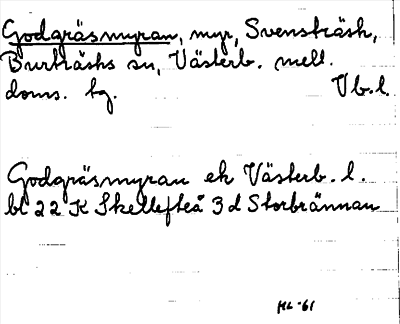 Godgräsmyran, myr, Svensträsk,
Burträsks sn, Västerb. mell.
doms. hg. Vb.l.
Godgräsmyran ek Västerb. l.
bl 22 K Skellefteå 3 d Storbrännan
ML -61